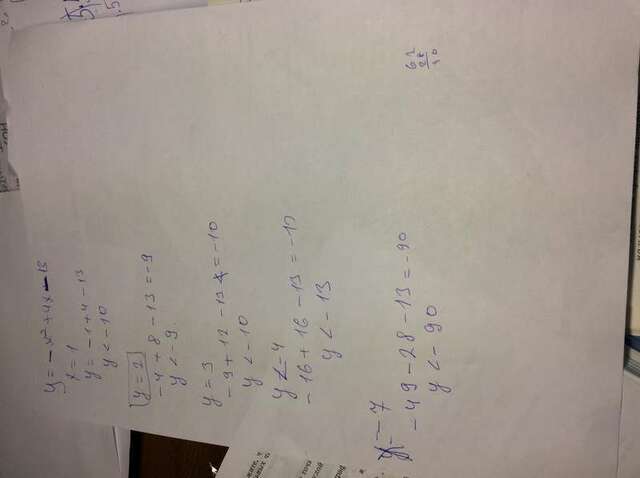 y = -x² + 4x - 13
x = 1
y = -1 + 4 - 13
y < -10
y = 2
-4 + 8 - 13 = -9
y < -9
y = 3
-9 + 12 - 13 = -10
y < -10
y < -4
-16 + 16 - 13 = -13
y < -13
-7
-49 - 28 - 13 = -90
y < -90